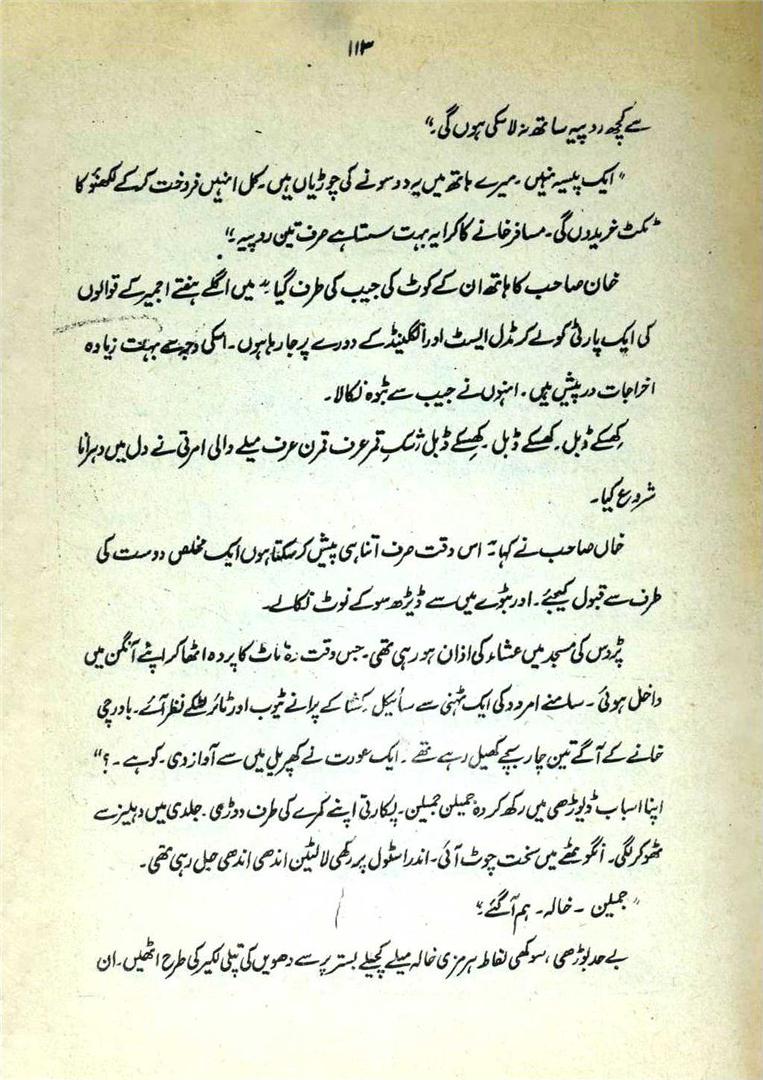 ۱۱۳
سے کچھ روپیہ ساتھ نہ لا سکی ہوں گی۔"
"ایک پیسہ نہیں۔ میرے ہاتھ میں یہ دو سونے کی چوڑیاں ہیں۔ کل انہیں فروخت کر کے لکھنؤ کا
ٹکٹ خریدوں گی۔ مسافر خانے کا کرایہ بہت سستا ہے صرف تین روپیہ۔"
خان صاحب کا ہاتھ ان کے کوٹ کی جیب کی طرف گیا۔" میں اگلے ہفتے اجمیر کے قوالوں
کی ایک پارٹی کو لے کر مڈل ایسٹ اور انگلینڈ کے دورے پر جا رہا ہوں۔ اسکی وجہ سے بہت زیادہ
اخراجات در پیش ہیں۔ انہوں نے جیب سے بٹوہ نکالا۔
کھسکے ڈبل۔ کھسکے ڈبل۔ کھسکے ڈبل رشکِ قمر عرف قمرن عرف میلے والی امرتی نے دل میں دہرانا
شروع کیا۔
خاں صاحب نے کہا۔" اس وقت صرف اتنا ہی پیش کر سکتا ہوں ایک مخلص دوست کی
طرف سے قبول کیجئے۔ اور بٹوے میں سے ڈیڑھ سو کے نوٹ نکالے۔
پڑوس کی مسجد میں عشاء کی اذان ہو رہی تھی۔ جس وقت وہ ٹاٹ کا پردہ اٹھا کر اپنے آنگن میں
داخل ہوئی۔ سامنے امرود کی ایک ٹہنی سے سائیکل رکشا کے پرانے ٹیوب اور ٹائر لٹکے نظر آئے۔ باورچی
خانے کے آگے تین چار بچے کھیل رہے تھے۔ ایک عورت نے کھپریل میں سے آواز دی۔ کو ہے۔؟"
اپنا اسباب ڈیوڑھی میں رکھ کر وہ جمیلن جمیلن۔ پکارتی اپنے کمرے کی طرف دوڑی۔ جلدی میں دہلیز سے
ٹھوکر لگی۔ انگوٹھے میں سخت چوٹ آئی۔ اندر اسٹول پر رکھی لالٹین اندھی اندھی جل رہی تھی۔
"جمیلن۔ خالہ۔ ہم آ گئے۔"
بے حد بوڑھی، سوکھی ہرمزی خالہ میلے کچیلے بستر پر سے دھویں کی پتلی لکیر کی طرح اٹھیں۔ ان